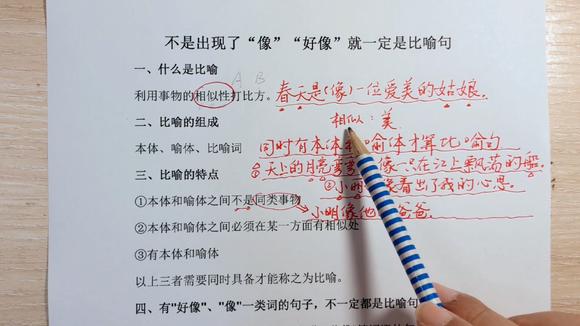 不是出现了“像”“好像”就一定是比喻句
一、什么是比喻 A B
利用事物的相似性打比方。春天是(像)一位爱美的姑娘.
相似:美
二、比喻的组成
同时有本体和喻体才算比喻句
本体、喻体、比喻词
①天上的月亮 像一只在江上飘荡的船.
三、比喻的特点
②小明 看出了我的心思.
①本体和喻体之间不是同类事物
小明像他 爸爸
②本体和喻体之间必须在某一方面有相似处
③有本体和喻体
以上三者需要同时具备才能称之为比喻。
四、有"好像"、"像"一类词的句子，不一定都是比喻句